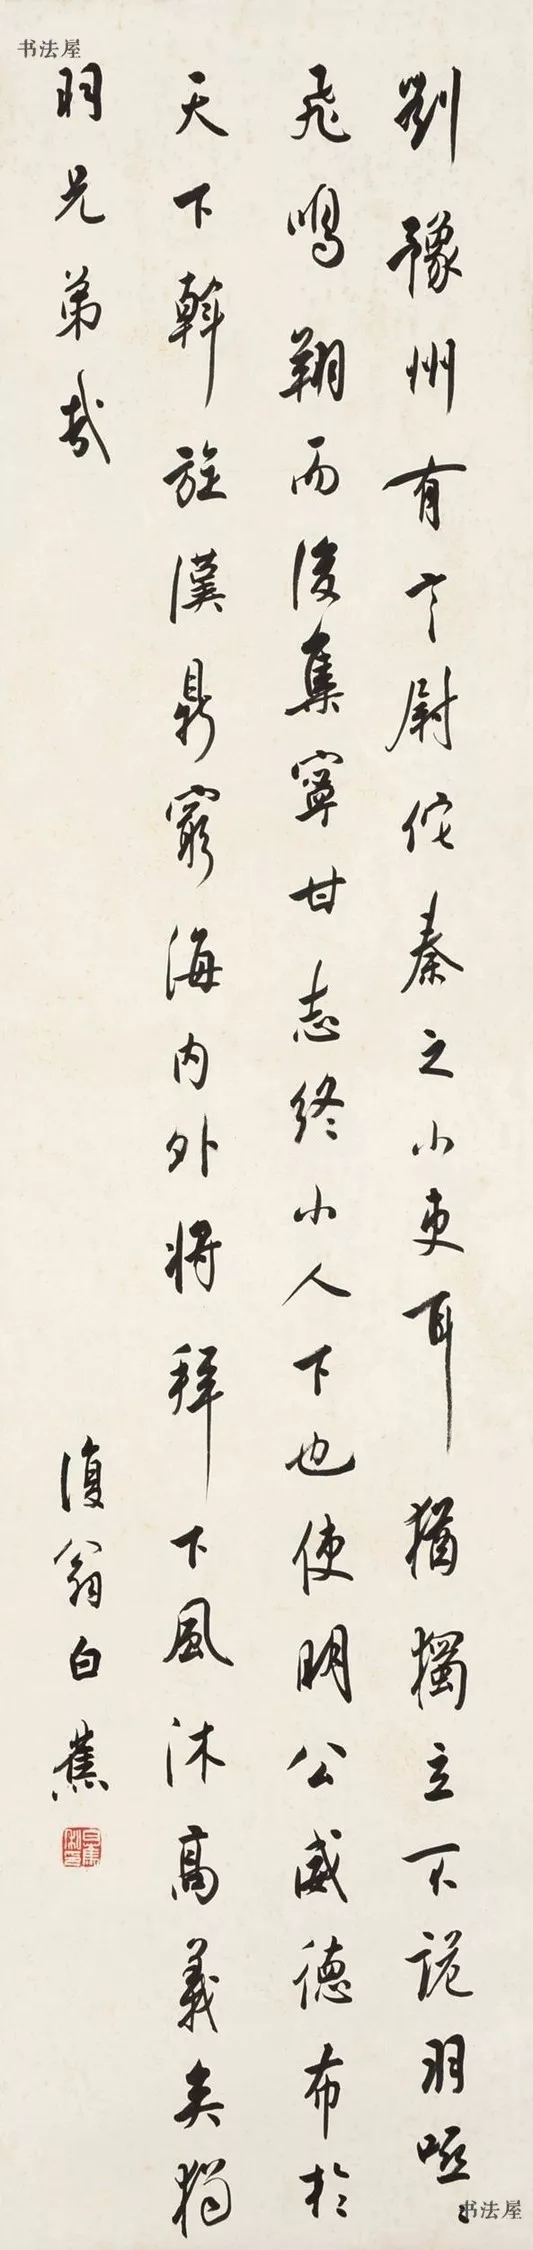 书法屋
劉豫州有言尉佗秦之小吏耳猶獨立不詭羽嘿
飛鳴翔而後集寧甘志終小人下也使明公威德布於
天下斡旋漢鼎窮海内外將拜下風沐高義矣獨
羽兄弟哉
復翁白蕉
书法屋